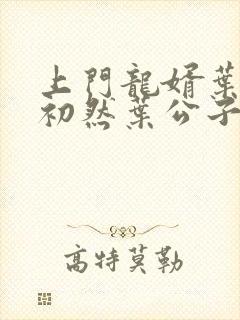 上門龍婿葉
初然葉公子
高特莫勒